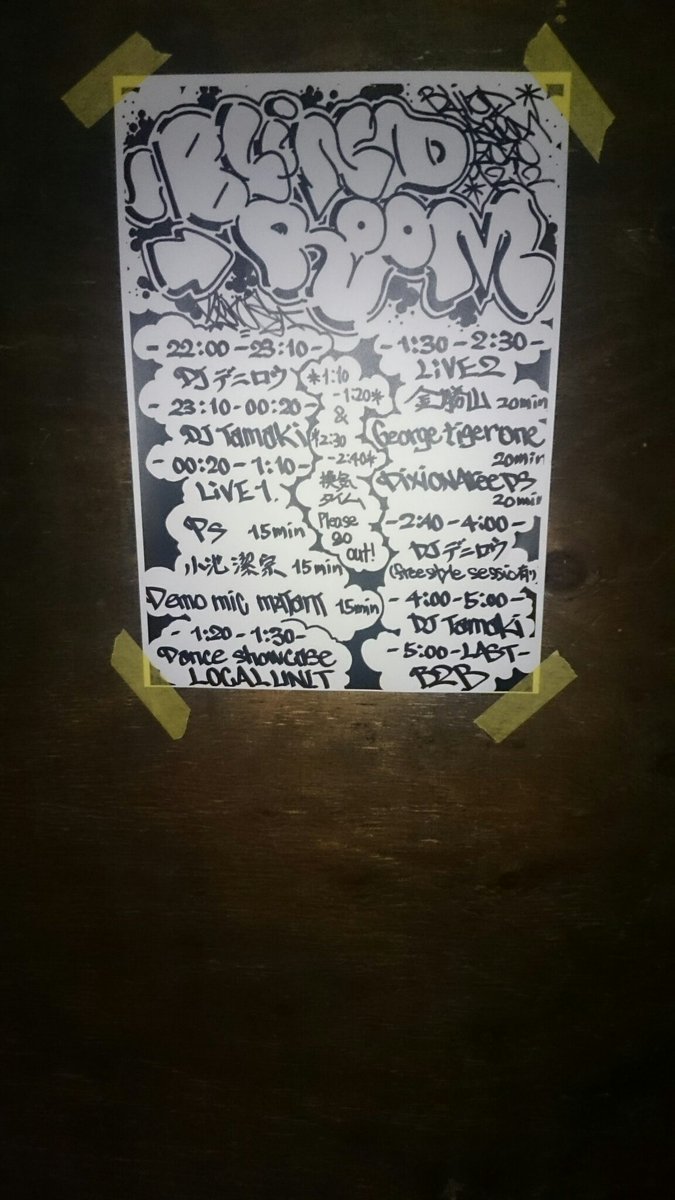 BLIND
ROOM
- 22:00 - 23:10 -
DJ デニロウ
- 23:10 - 00:20 -
DJ Tamaki
- 00:20 - 1:10 -
LiVE 1.
PS 15min
小池潔宗 15min
Demo mic 15min
- 1:20 - 1:30 -
Dance showcase
LOCAL UNIT
*1:10
-1:20*
&
*2:30
-2:40*
換気
タイム
Please
go
out!
- 1:30 - 2:30 -
LiVE 2
金勝山 20min
George tiger one
20min
20min
- 2:40 - 4:00 -
DJ デニロウ
(freestyle session有)
- 4:00 - 5:00 -
DJ Tamaki
- 5:00 - LAST -
B2B